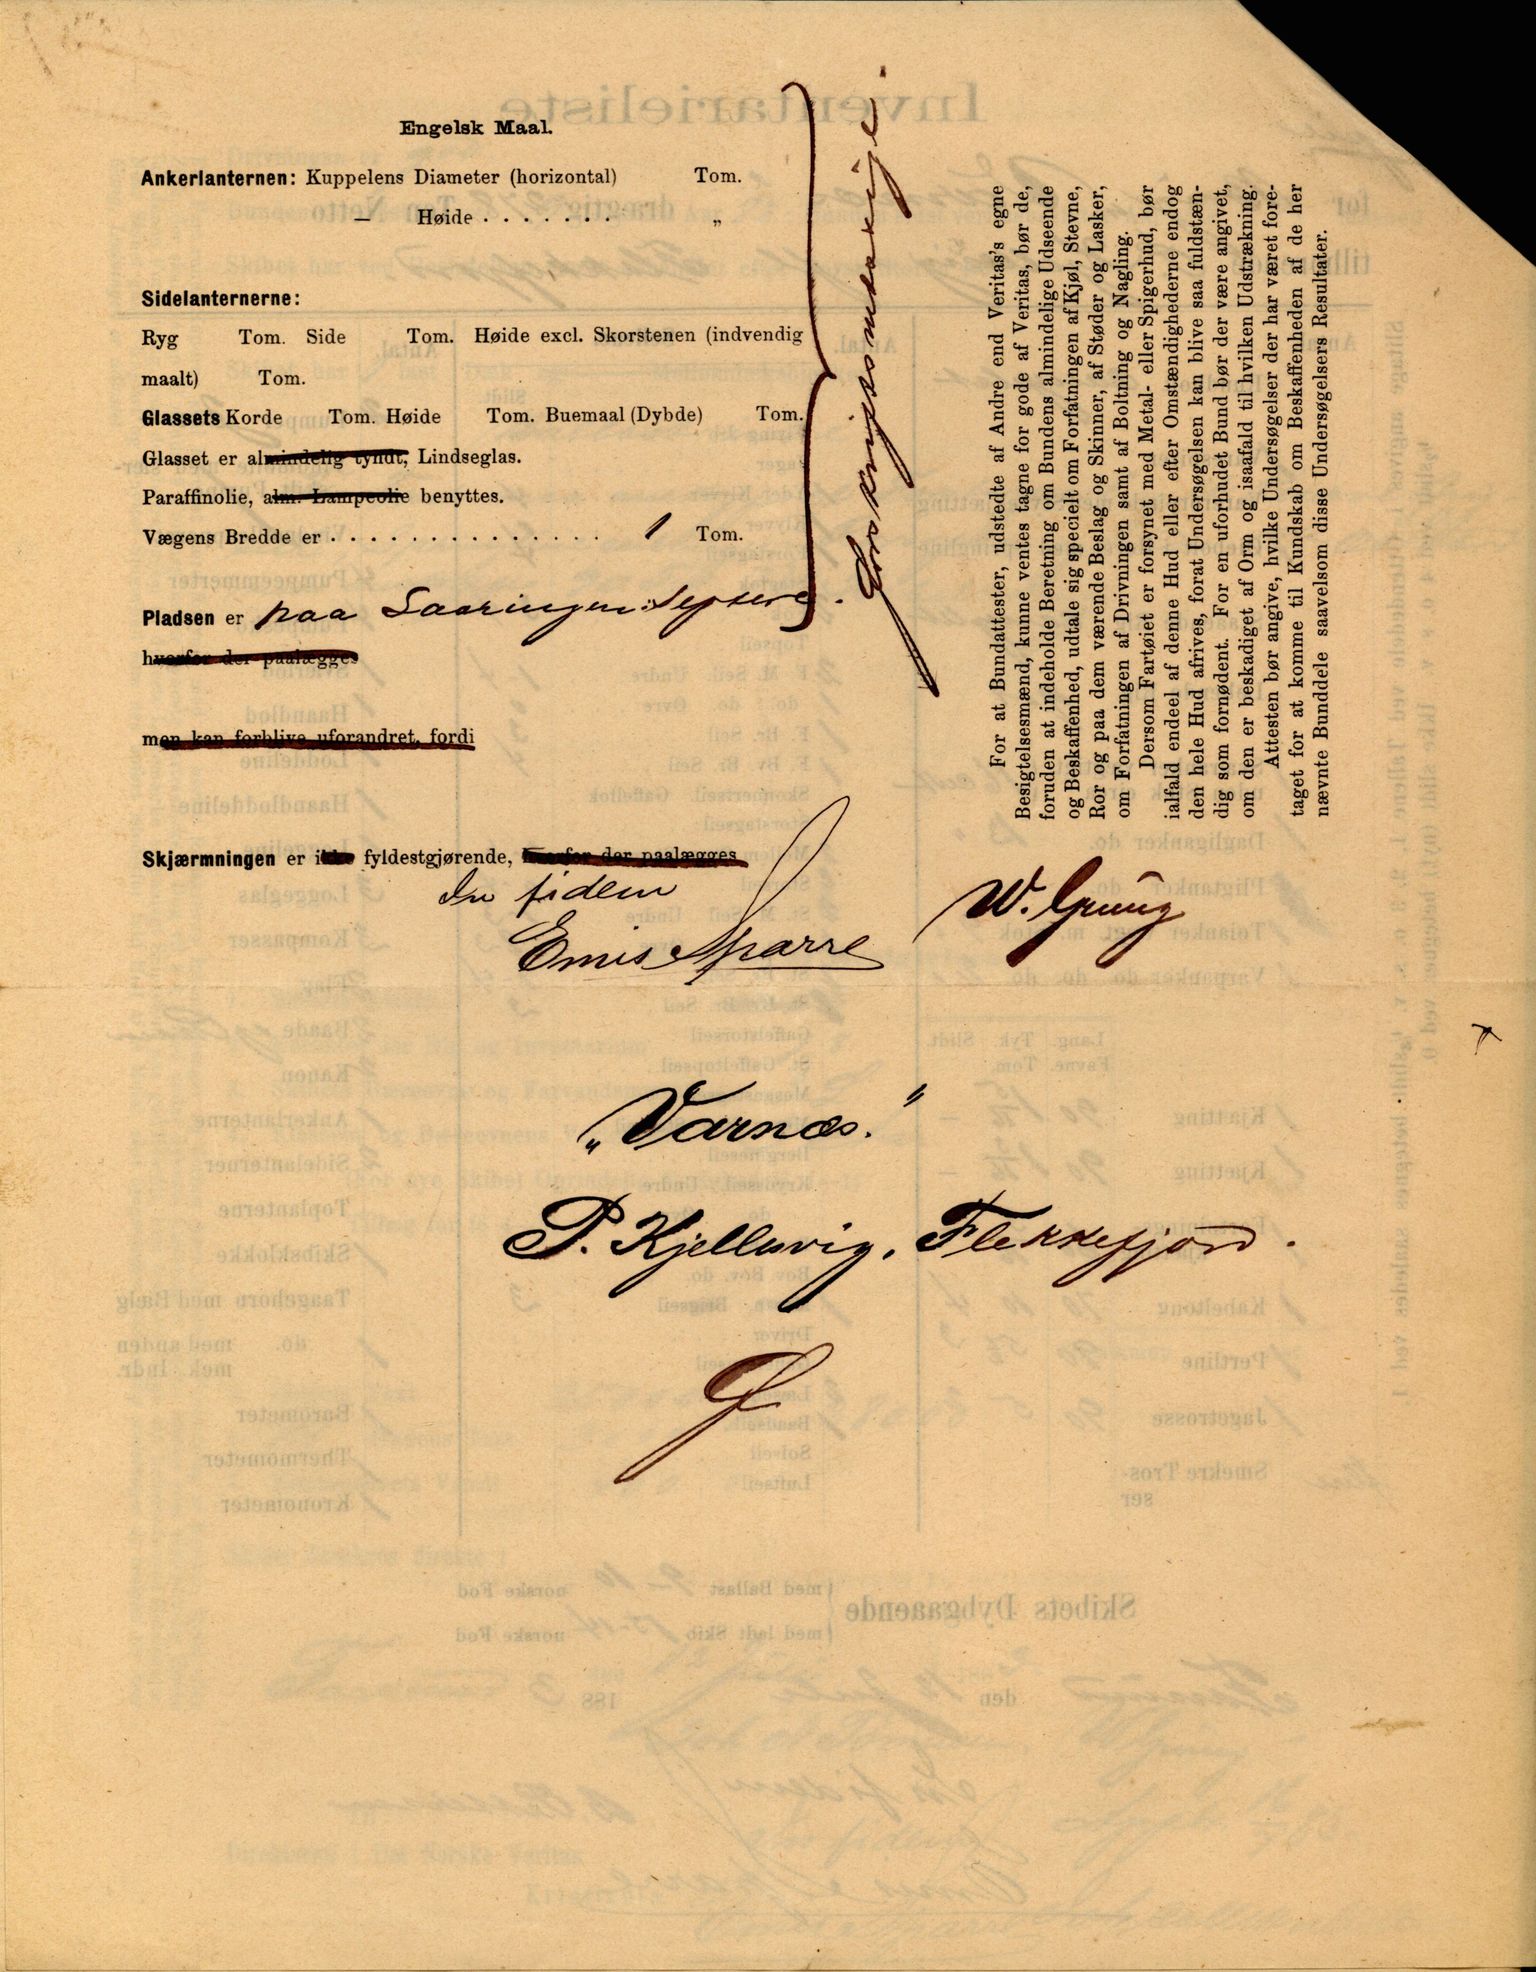 Engelsk Maal.
Ankerlanternen: Kuppelens Diameter (horizontal) Tom.
— Høide . . . . . . . „
Sidelanternerne:
Ryg Tom. Side Tom. Høide excl. Skorstenen (indvendig
maalt) Tom.
Glassets Korde Tom. Høide Tom. Buemaal (Dybde) Tom.
Glasset er almindelig tyndt, Lindseglas.
Paraffinolie, alm. Lampeolie benyttes.
Vægens Bredde er . . . . . . . . . . . . . . 1 Tom.
Pladsen er paa
hvorfor der paalægges
men kan forblive uforandret, fordi
Skjærmningen er ikke fyldestgjørende, hvorfor der paalægges
forskriftsmæssige
For at Bundattester, udstedte af Andre end Veritas's egne
Besigtelsesmænd, kunne ventes tagne for gode af Veritas, bør de,
foruden at indeholde Beretning om Bundens almindelige Udseende
og Beskaffenhed, udtale sig specielt om Forfatningen af Kjøl, Stevne,
Ror og paa dem værende Beslag og Skinner, af Støder og Lasker,
om Forfatningen af Drivningen samt af Boltning og Nagling.
Dersom Fartøiet er forsynet med Metal- eller Spigerhud, bør
ialfald endeel af denne Hud eller efter Omstændighederne endog
den hele Hud afrives, forat Undersøgelsen kan blive saa fuldstæn-
dig som fornødent. For en uforhudet Bund bør der være angivet,
om den er beskadiget af Orm og isaafald til hvilken Udstrækning.
Attesten bør angive, hvilke Undersøgelser der har været fore-
taget for at komme til Kundskab om Beskaffenheden af de her
nævnte Bunddele saavelsom disse Undersøgelsers Resultater.
In fidem
Sparre
W. Gruug
„Varnæs."
P. Kjellesvig, Flekkefjord.